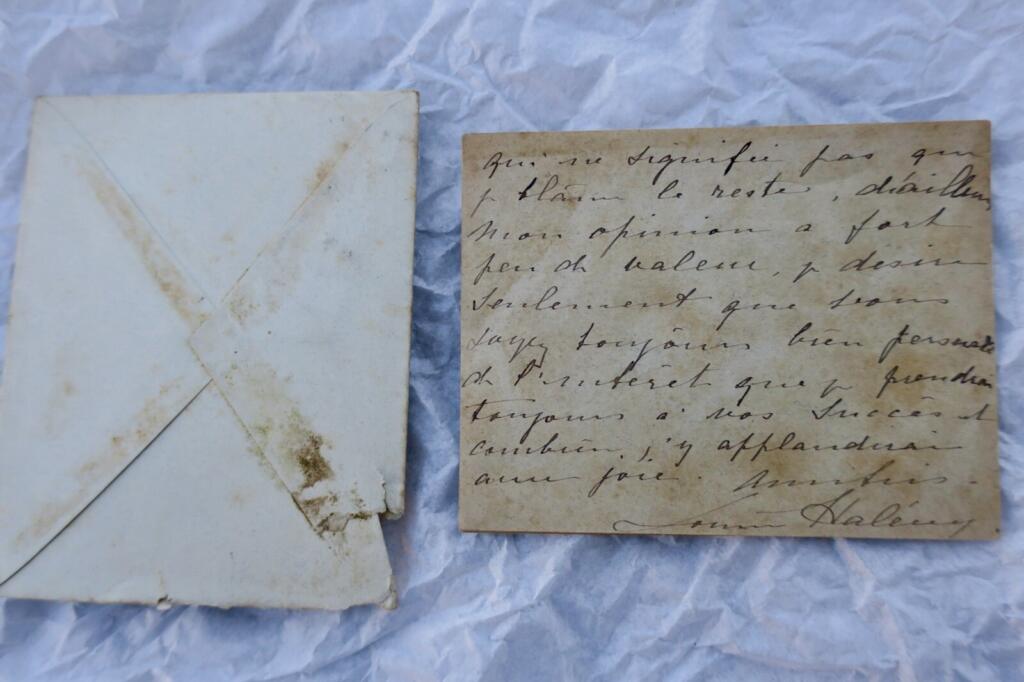 qui ne signifie pas que
je blâme le reste, d'ailleurs
mon opinion a fort
peu de valeur, je désire
seulement que vous
soyez toujours bien persuadé
de l'intérêt que je prendrai
toujours à vos succès et
combien j'y applaudirai
avec joie. Amitiés.
Halévy